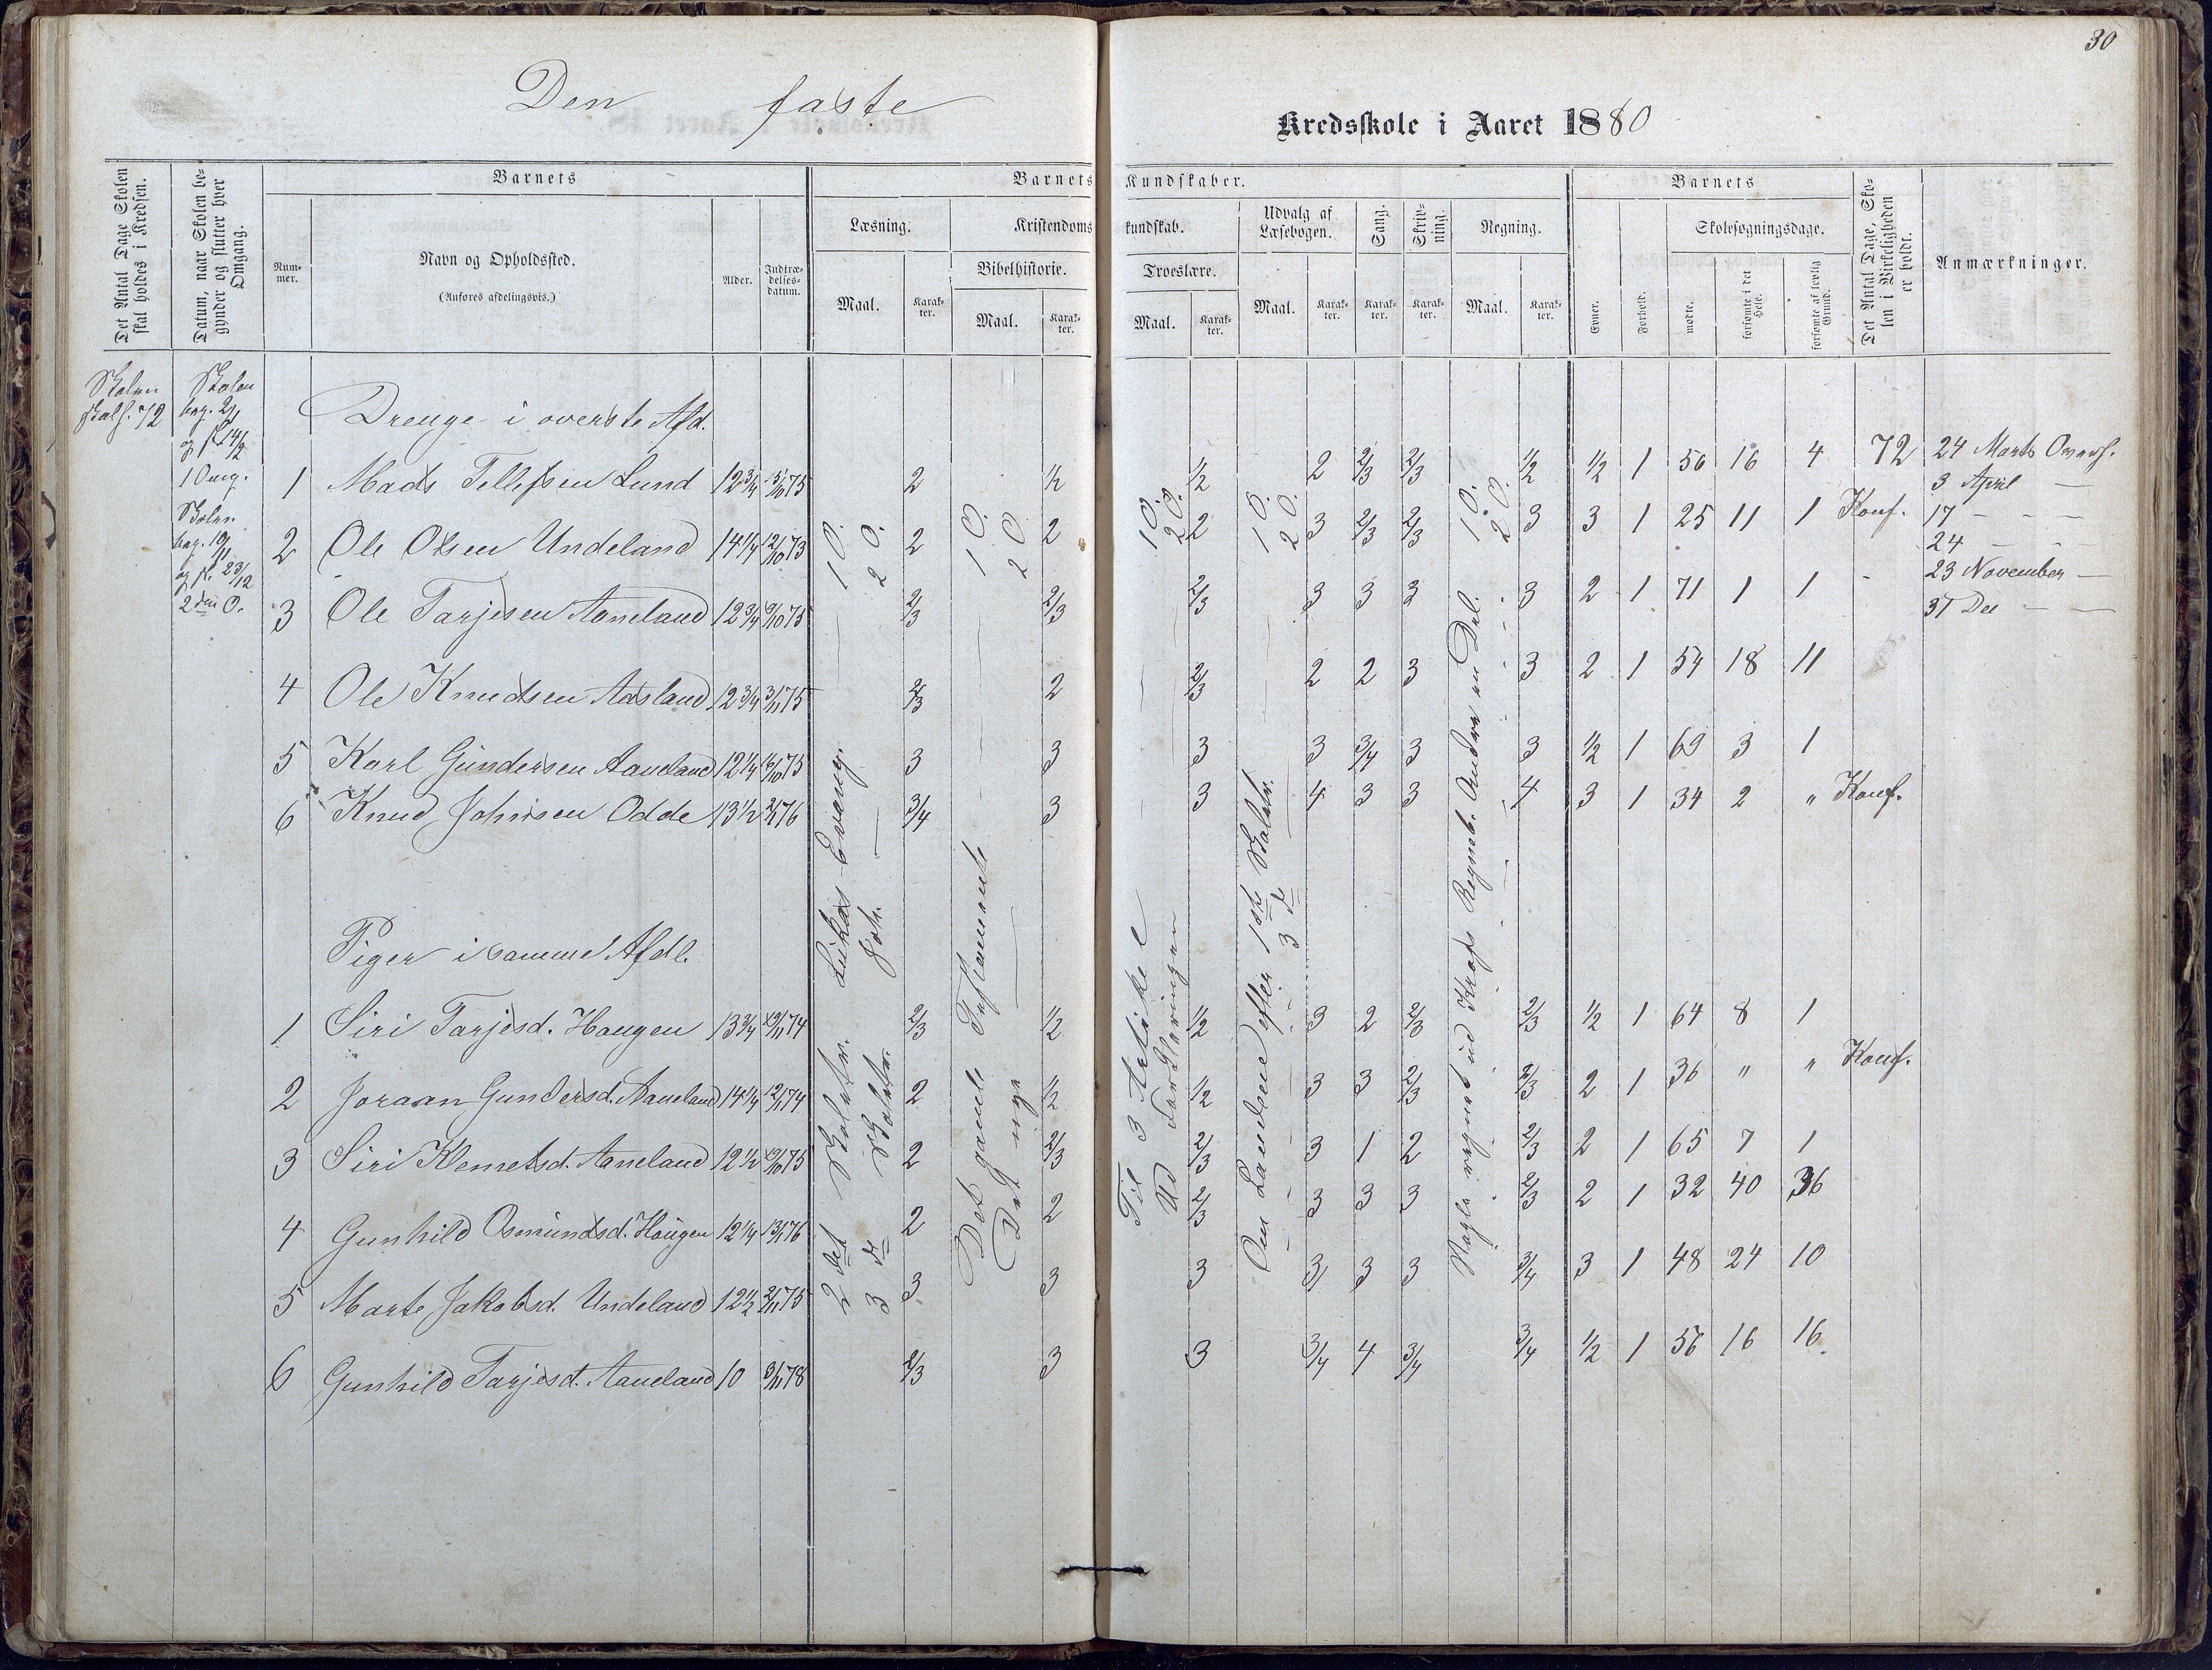 30
Den faste
Kredsskole i Aaret 1880
Det Antal Dage Skolen skal holdes i Kredsen.
Datum, naar Skolen begynder og slutter hver Omgang.
Barnets
Nummer.
Navn og Opholdssted.
(Anføres afdelingsvis.)
Alder.
Indtrædelsesdatum.
Barnets Kundskaber.
Læsning.
Maal.
Karakter.
Kristendomskundskab.
Bibelhistorie.
Maal.
Karakter.
Troeslære.
Maal.
Karakter.
Udvalg af Læsebogen.
Maal.
Karakter.
Sang.
Karakter.
Skrivning.
Karakter.
Regning.
Maal.
Karakter.
Barnets
Evner.
Forhold.
Skolesøgningsdage.
mødte.
forsømte i det Hele.
forsømte af lovlig Grund.
Det Antal Dage, Skolen i Virkeligheden er holdt.
Anmærkninger.
Skolen
skal h. 72
Skolen
beg. 2/1
og sl. 14/2
1 Omg.
Skolen
beg. 19/11
og sl. 23/12
2den O.
Drenge i øverste Afd.
1 Mads Tellefsen Lund 12 3/4 15/10 75 2 1/2 1/2 2 2/3 2/3 1/2 1/2 1 56 16 4 72
2 Ole Olsen Undeland 14 1/4 12/10 73 2 2 2 3 2/3 2/3 3 3 1 25 11 1 Konf.
3 Ole Tarjesen Aaneland 12 3/4 9/10 75 2/3 2/3 2/3 3 3 3 3 2 1 71 1 1
4 Ole Knudsen Aasland 12 3/4 3/11 75 2/3 2 2/3 2 2 3 3 2 1 54 18 11
5 Karl Gundersen Aaneland 12 1/4 16/10 75 3 3 3 3 3/4 3 3 1/2 1 69 3 1
6 Knud Johnsen Odde 13 1/2 2/1 76 3/4 3 3 4 3 3 4 3 1 34 2 " Konf.
24 Marts Overh.
3 April —
17 — —
24 — —
23 November —
31 Dec — —
Piger i samme Afdl.
1 Siri Tarjesd. Haugen 13 3/4 19/11 74 2/3 1/2 1/2 3 2 2/3 2/3 1/2 1 64 8 1
2 Joraan Gundersd. Aaneland 14 1/4 12/11 74 2 1/2 1/2 3 3 2/3 2/3 2 1 36 " " Konf.
3 Siri Klemetsd. Aaneland 12 1/2 19/10 75 2 2/3 2/3 3 1 2 2/3 2 1 65 7 1
4 Gunhild Osmundsd. Haugen 12 1/4 13/1 76 2 2 2/3 3 3 3 2/3 2 1 32 40 36
5 Marte Jakobsd. Undeland 12 1/2 2/11 75 3 3 3 3 3 3 3/4 3 1 48 24 10
6 Gunhild Tarjesd. Aaneland 10 9/11 78 2/3 3 3 3/4 4 3/4 3/4 1/2 1 56 16 16
2det Skoletr. Lukas Evang. — 1 O.
3de Skoletr. Joh. — 2 O.
Det gamle Testamente — 1 O.
Det nye — 2 O.
Til 3 Artikel — 1 O.
Ud Forklaringen — 2 O.
Om Landene efter 1ste Skoletr. — 1 O.
3de — 2 O.
Nogle regnet ud Krafs Regneb. Andre en Del. 1 O.
2 O.